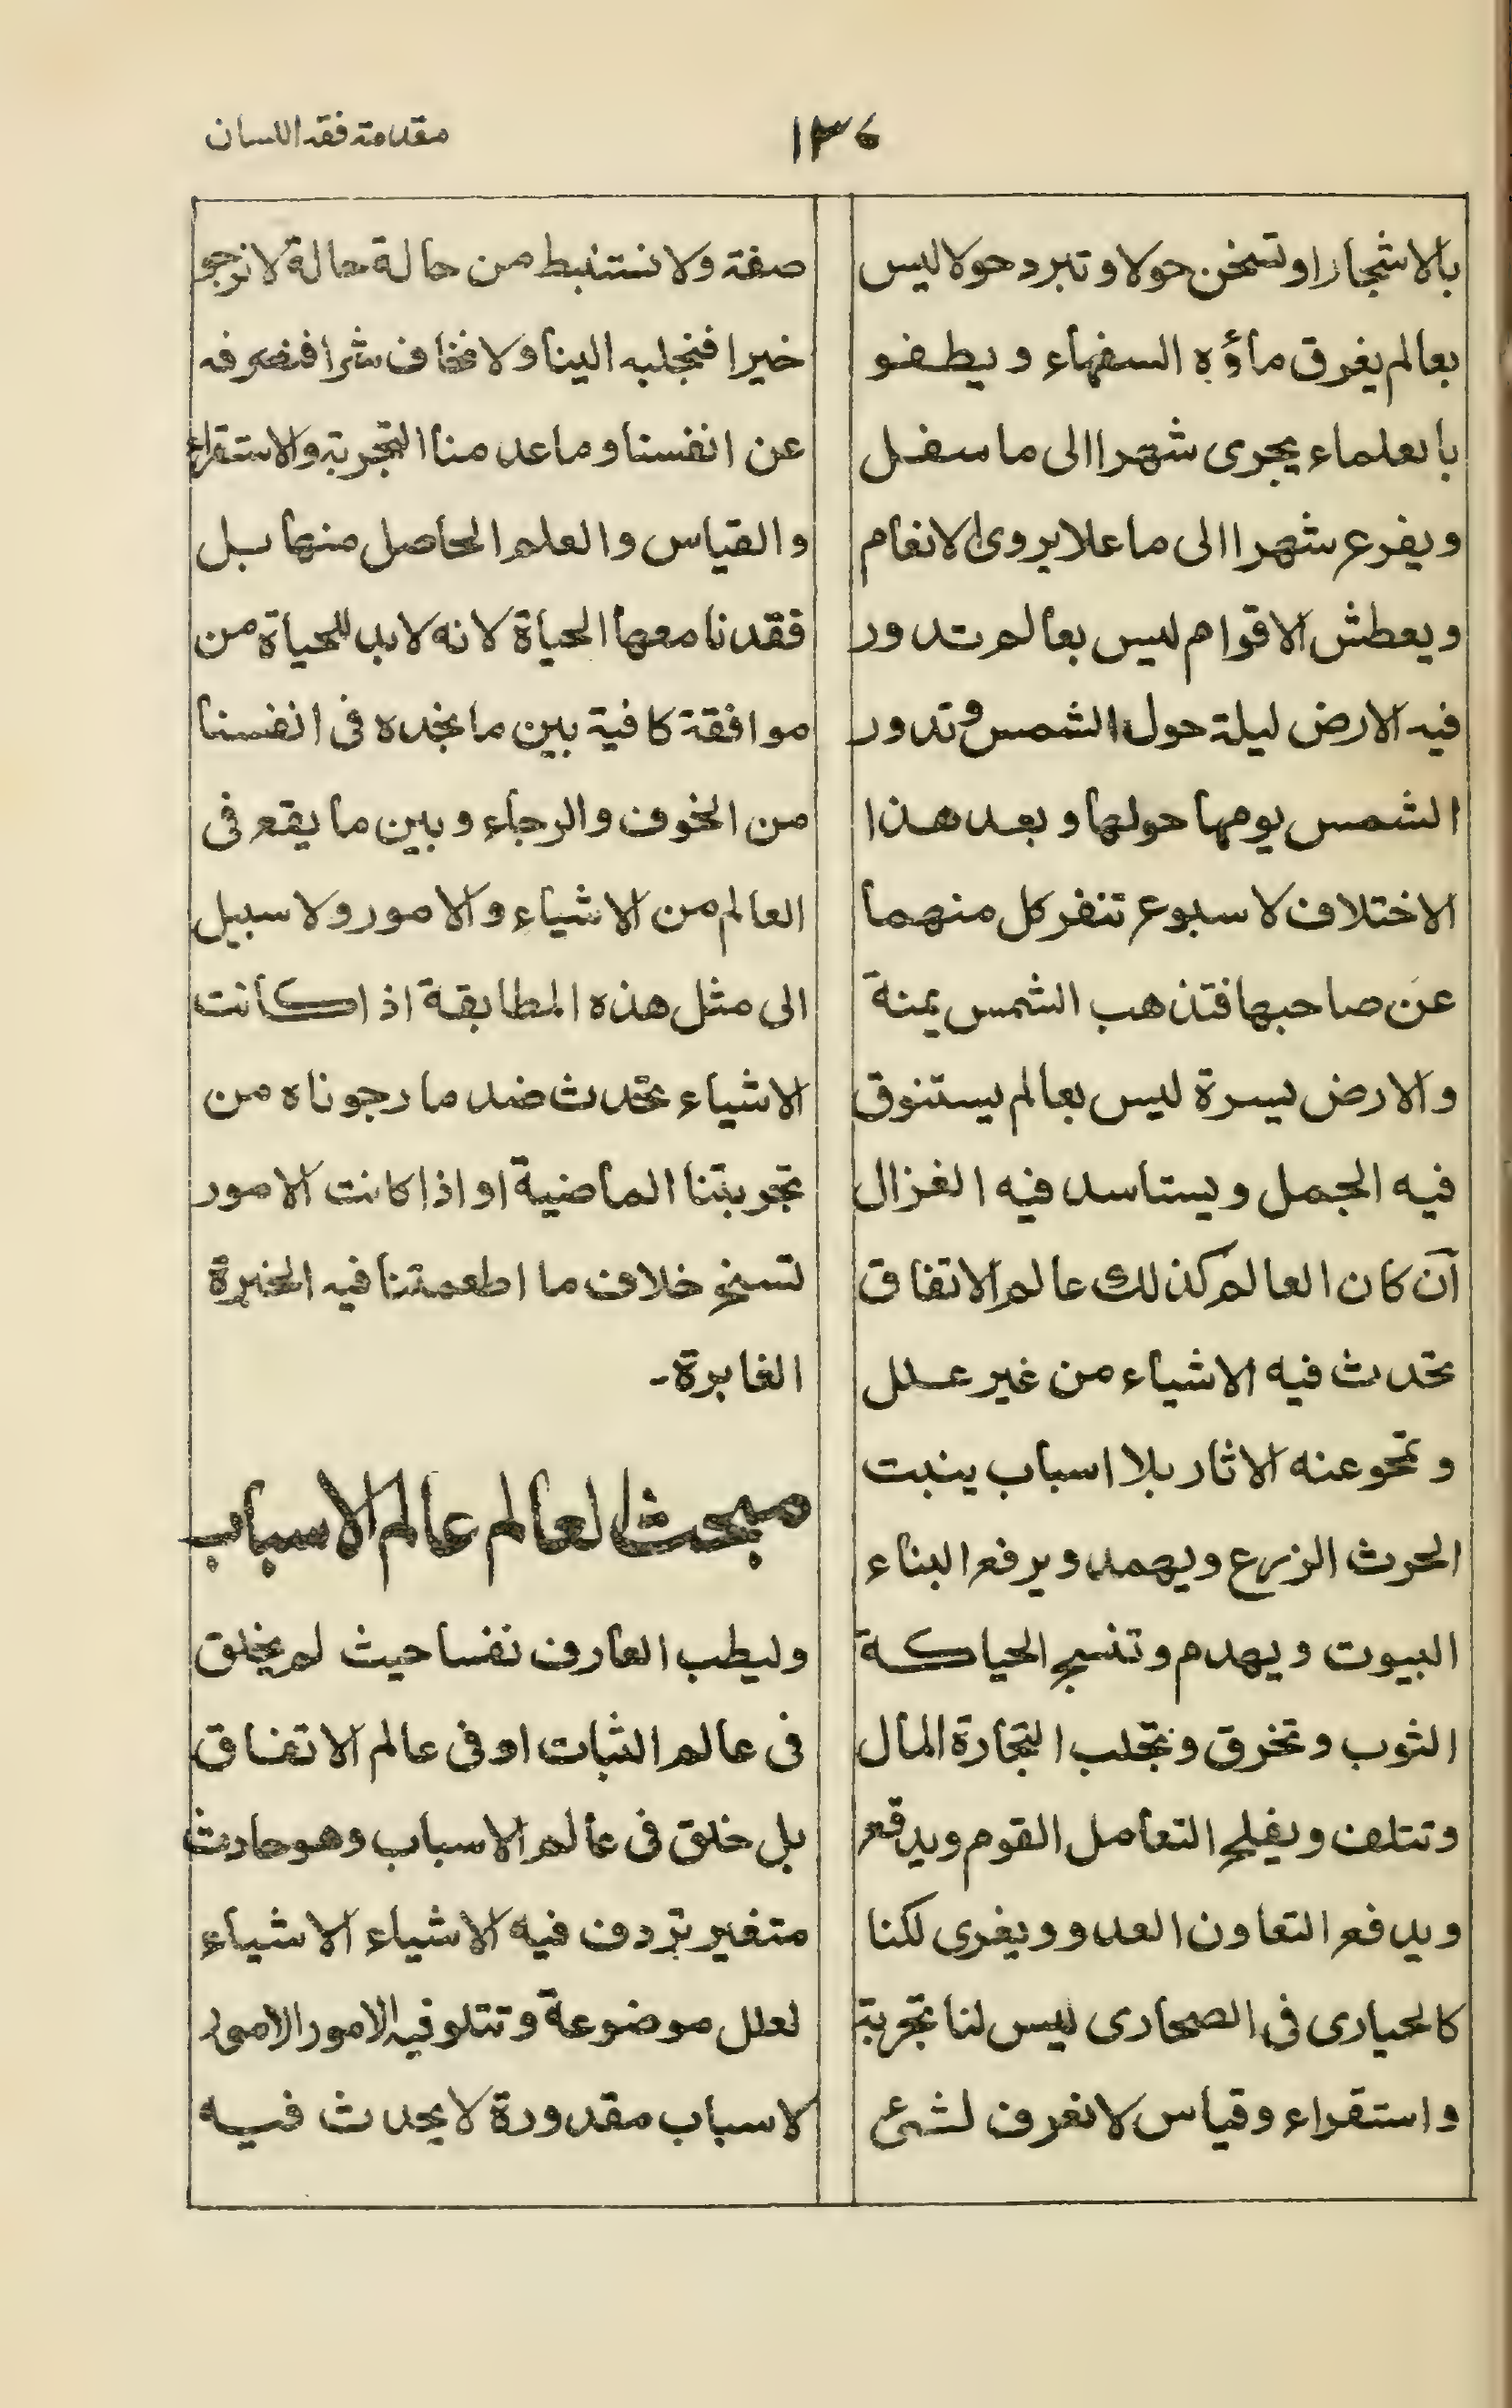 مقدمة فقه اللسان
١٣٦
بالاشجار او تسخن حولا و تبرد حولا ليس
بعالم يغرق ماؤه السفهاء و يطفو
بالعلماء يجرى شهرا الى ما سفل
و يفرع شهرا الى ما علا يروى الانعام
و يعطش الاقوام ليس بعالم تدور
فيه الارض ليلة حول الشمس و تدور
الشمس يومها حولها و بعد هذا
الاختلاف لاسبوع تنفر كل منهما
عن صاحبها فتذهب الشمس يمنة
و الارض يسرة ليس بعالم يستنوق
فيه الجمل و يستاسد فيه الغزال
آن كان العالم كذلك عالم الاتفاق
تحدث فيه الاشياء من غير علل
و تمحو عنه الاثار بلا اسباب ينبت
الحرث الزرع و يهمد و يرفع البناء
البيوت و يهدم و تنسج الحياكة
الثوب و تخرق و تجلب التجارة المال
و تتلف و يفلح التعامل القوم و يدقع
و يدفع التعاون العدو و يغرى لكنا
كالحيارى فى الصحارى ليس لنا تجربة
و استقراء و قياس لا نعرف لشىء
صفة و لا نستنبط من حالة حالة لا نرجو
خيرا فنجلبه الينا و لا نخاف شرا فنصرفه
عن انفسنا و ما عدمنا التجربة و الاستقراء
و القياس و العلم الحاصل منها بل
فقدنا معها الحياة لانه لابد للحياة من
موافقة كافية بين ما نجده فى انفسنا
من الخوف و الرجاء و بين ما يقع فى
العالم من الاشياء و الامور و لا سبيل
الى مثل هذه المطابقة اذا كانت
الاشياء تحدث ضد ما رجوناه من
تجربتنا الماضية او اذا كانت الامور
تسنح خلاف ما اطعمتنا فيه الخبرة
الغابرة-
مبحث العالم عالم الاسباب
و ليطب العارف نفسا حيث لم يخلق
فى عالم الثبات او فى عالم الاتفاق
بل خلق فى عالم الاسباب و هو حادث
متغير تردف فيه الاشياء الاشياء
لعلل موضوعة و تتلو فيه الامور الامور
لاسباب مقدورة لا يحدث فيه